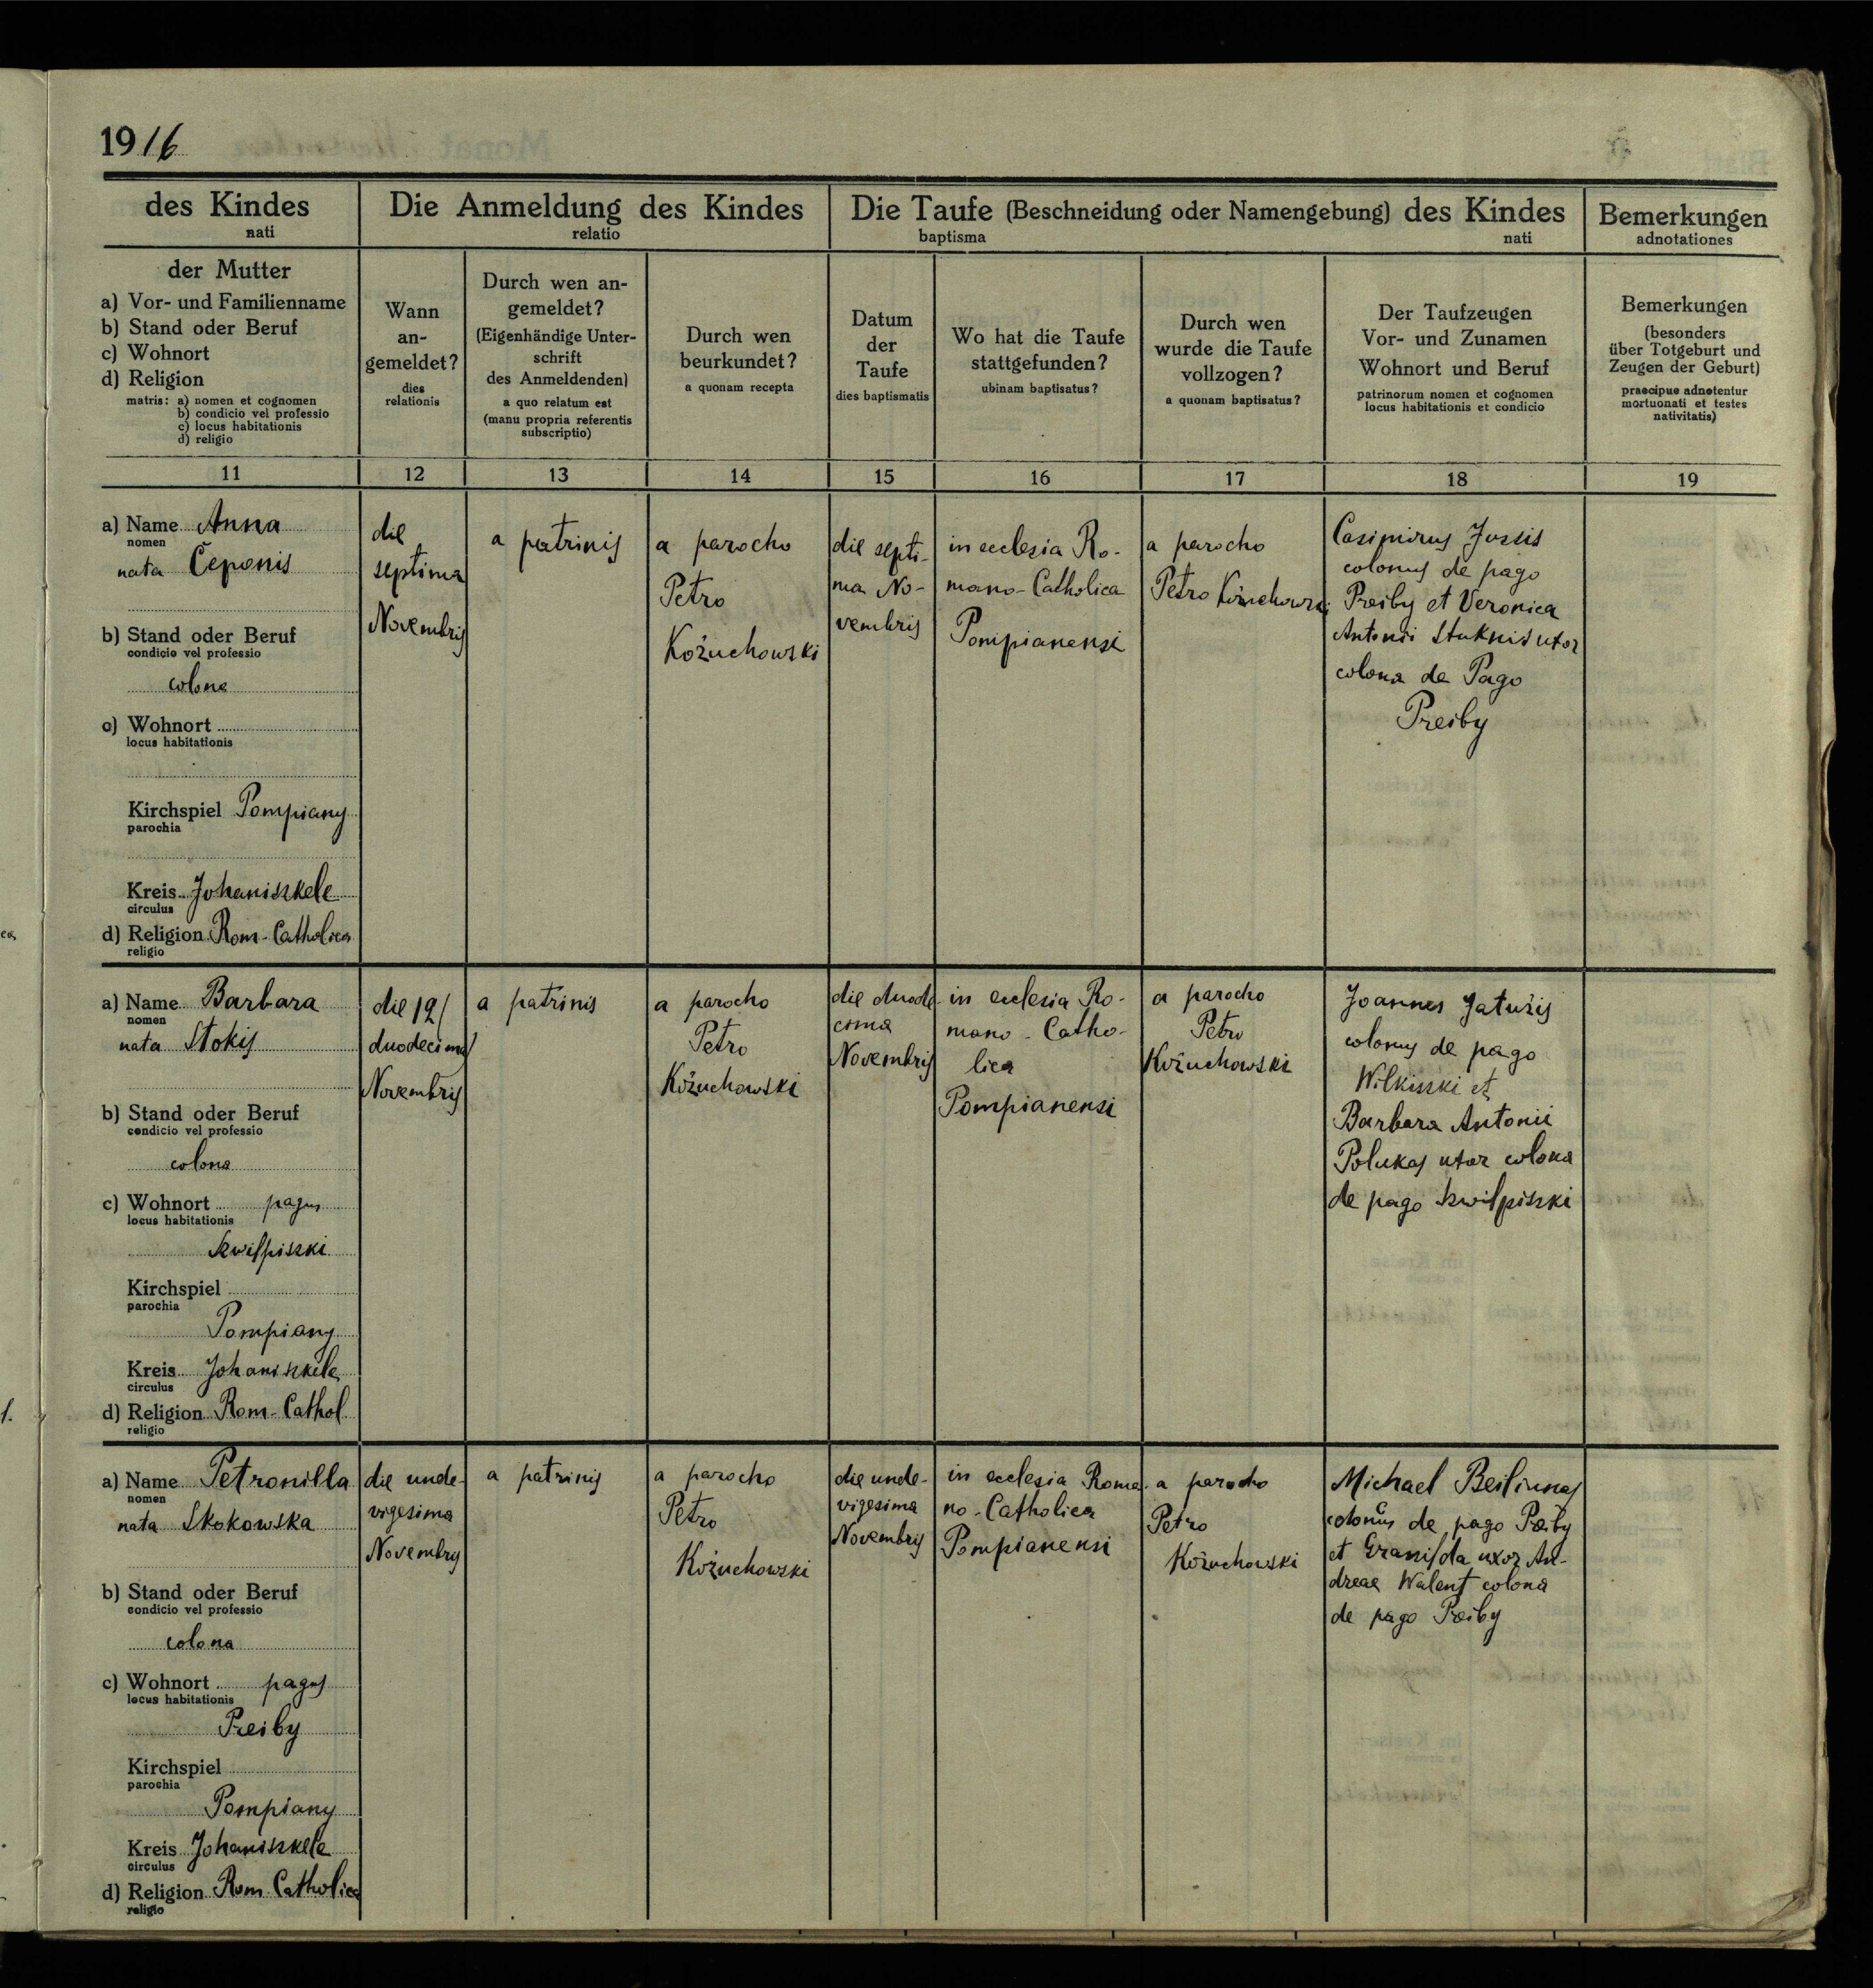 1916
des Kindes
nati
Die Anmeldung des Kindes
relatio
Die Taufe (Beschneidung oder Namengebung) des Kindes
baptisma nati
Bemerkungen
adnotationes
der Mutter
a) Vor- und Familienname
b) Stand oder Beruf
c) Wohnort
d) Religion
matris: a) nomen et cognomen
b) condicio vel professio
c) locus habitationis
d) religio
Wann
an-
gemeldet?
dies
relationis
Durch wen an-
gemeldet?
(Eigenhändige Unter-
schrift
des Anmeldenden)
a quo relatum est
(manu propria referentis
subscriptio)
Durch wen
beurkundet?
a quonam recepta
Datum
der
Taufe
dies baptismatis
Wo hat die Taufe
stattgefunden?
ubinam baptisatus?
Durch wen
wurde die Taufe
vollzogen?
a quonam baptisatus?
Der Taufzeugen
Vor- und Zunamen
Wohnort und Beruf
patrinorum nomen et cognomen
locus habitationis et condicio
Bemerkungen
(besonders
über Totgeburt und
Zeugen der Geburt)
praecipue adnotentur
mortuonati et testes
nativitatis)
11 12 13 14 15 16 17 18 19
a) Name Anna
nomen
nata Čeponis
b) Stand oder Beruf
condicio vel professio
colona
c) Wohnort
locus habitationis
Kirchspiel Pompiany
parochia
Kreis Johaniszkele
circulus
d) Religion Rom-Catholica
religio
die
septima
Novembris
a patrinis
a parocho
Petro
Kożuchowski
die septi-
ma No-
vembris
in ecclesia Ro-
mano-Catholica
Pompianensi
a parocho
Petro Kożuchowski
Casimirus
colonus de pago
Preiby et Veronica
Antonii Stuknis uxor
colona de Pago
Preiby
a) Name Barbara
nomen
nata Stokis
b) Stand oder Beruf
condicio vel professio
colona
c) Wohnort pagus
locus habitationis
Szwilpiszki
Kirchspiel
parochia
Pompiany
Kreis Johaniszkele
circulus
d) Religion Rom-Cathol
religio
die 12/
duodecima/
Novembris
a patrinis
a parocho
Petro
Kożuchowski
die duode
cima
Novembris
in ecclesia Ro-
mano-Catho-
lica
Pompianensi
a parocho
Petro
Kożuchowski
Joannes Jatužis
colonus de pago
Wilkiszki et
Barbara Antonii
Polukas uxor colona
de pago Szwilpiszki
a) Name Petronilla
nomen
nata Skokowska
b) Stand oder Beruf
condicio vel professio
colona
c) Wohnort pagus
locus habitationis
Preiby
Kirchspiel
parochia
Pompiany
Kreis Johaniszkele
circulus
d) Religion Rom-Catholica
religio
die unde-
vigesima
Novembris
a patrinis
a parocho
Petro
Kożuchowski
die unde-
vigesima
Novembris
in ecclesia Roma-
no-Catholica
Pompianensi
a parocho
Petro
Kożuchowski
Michael
colonus de pago Preiby
et uxor An-
dreae colona
de pago Preiby